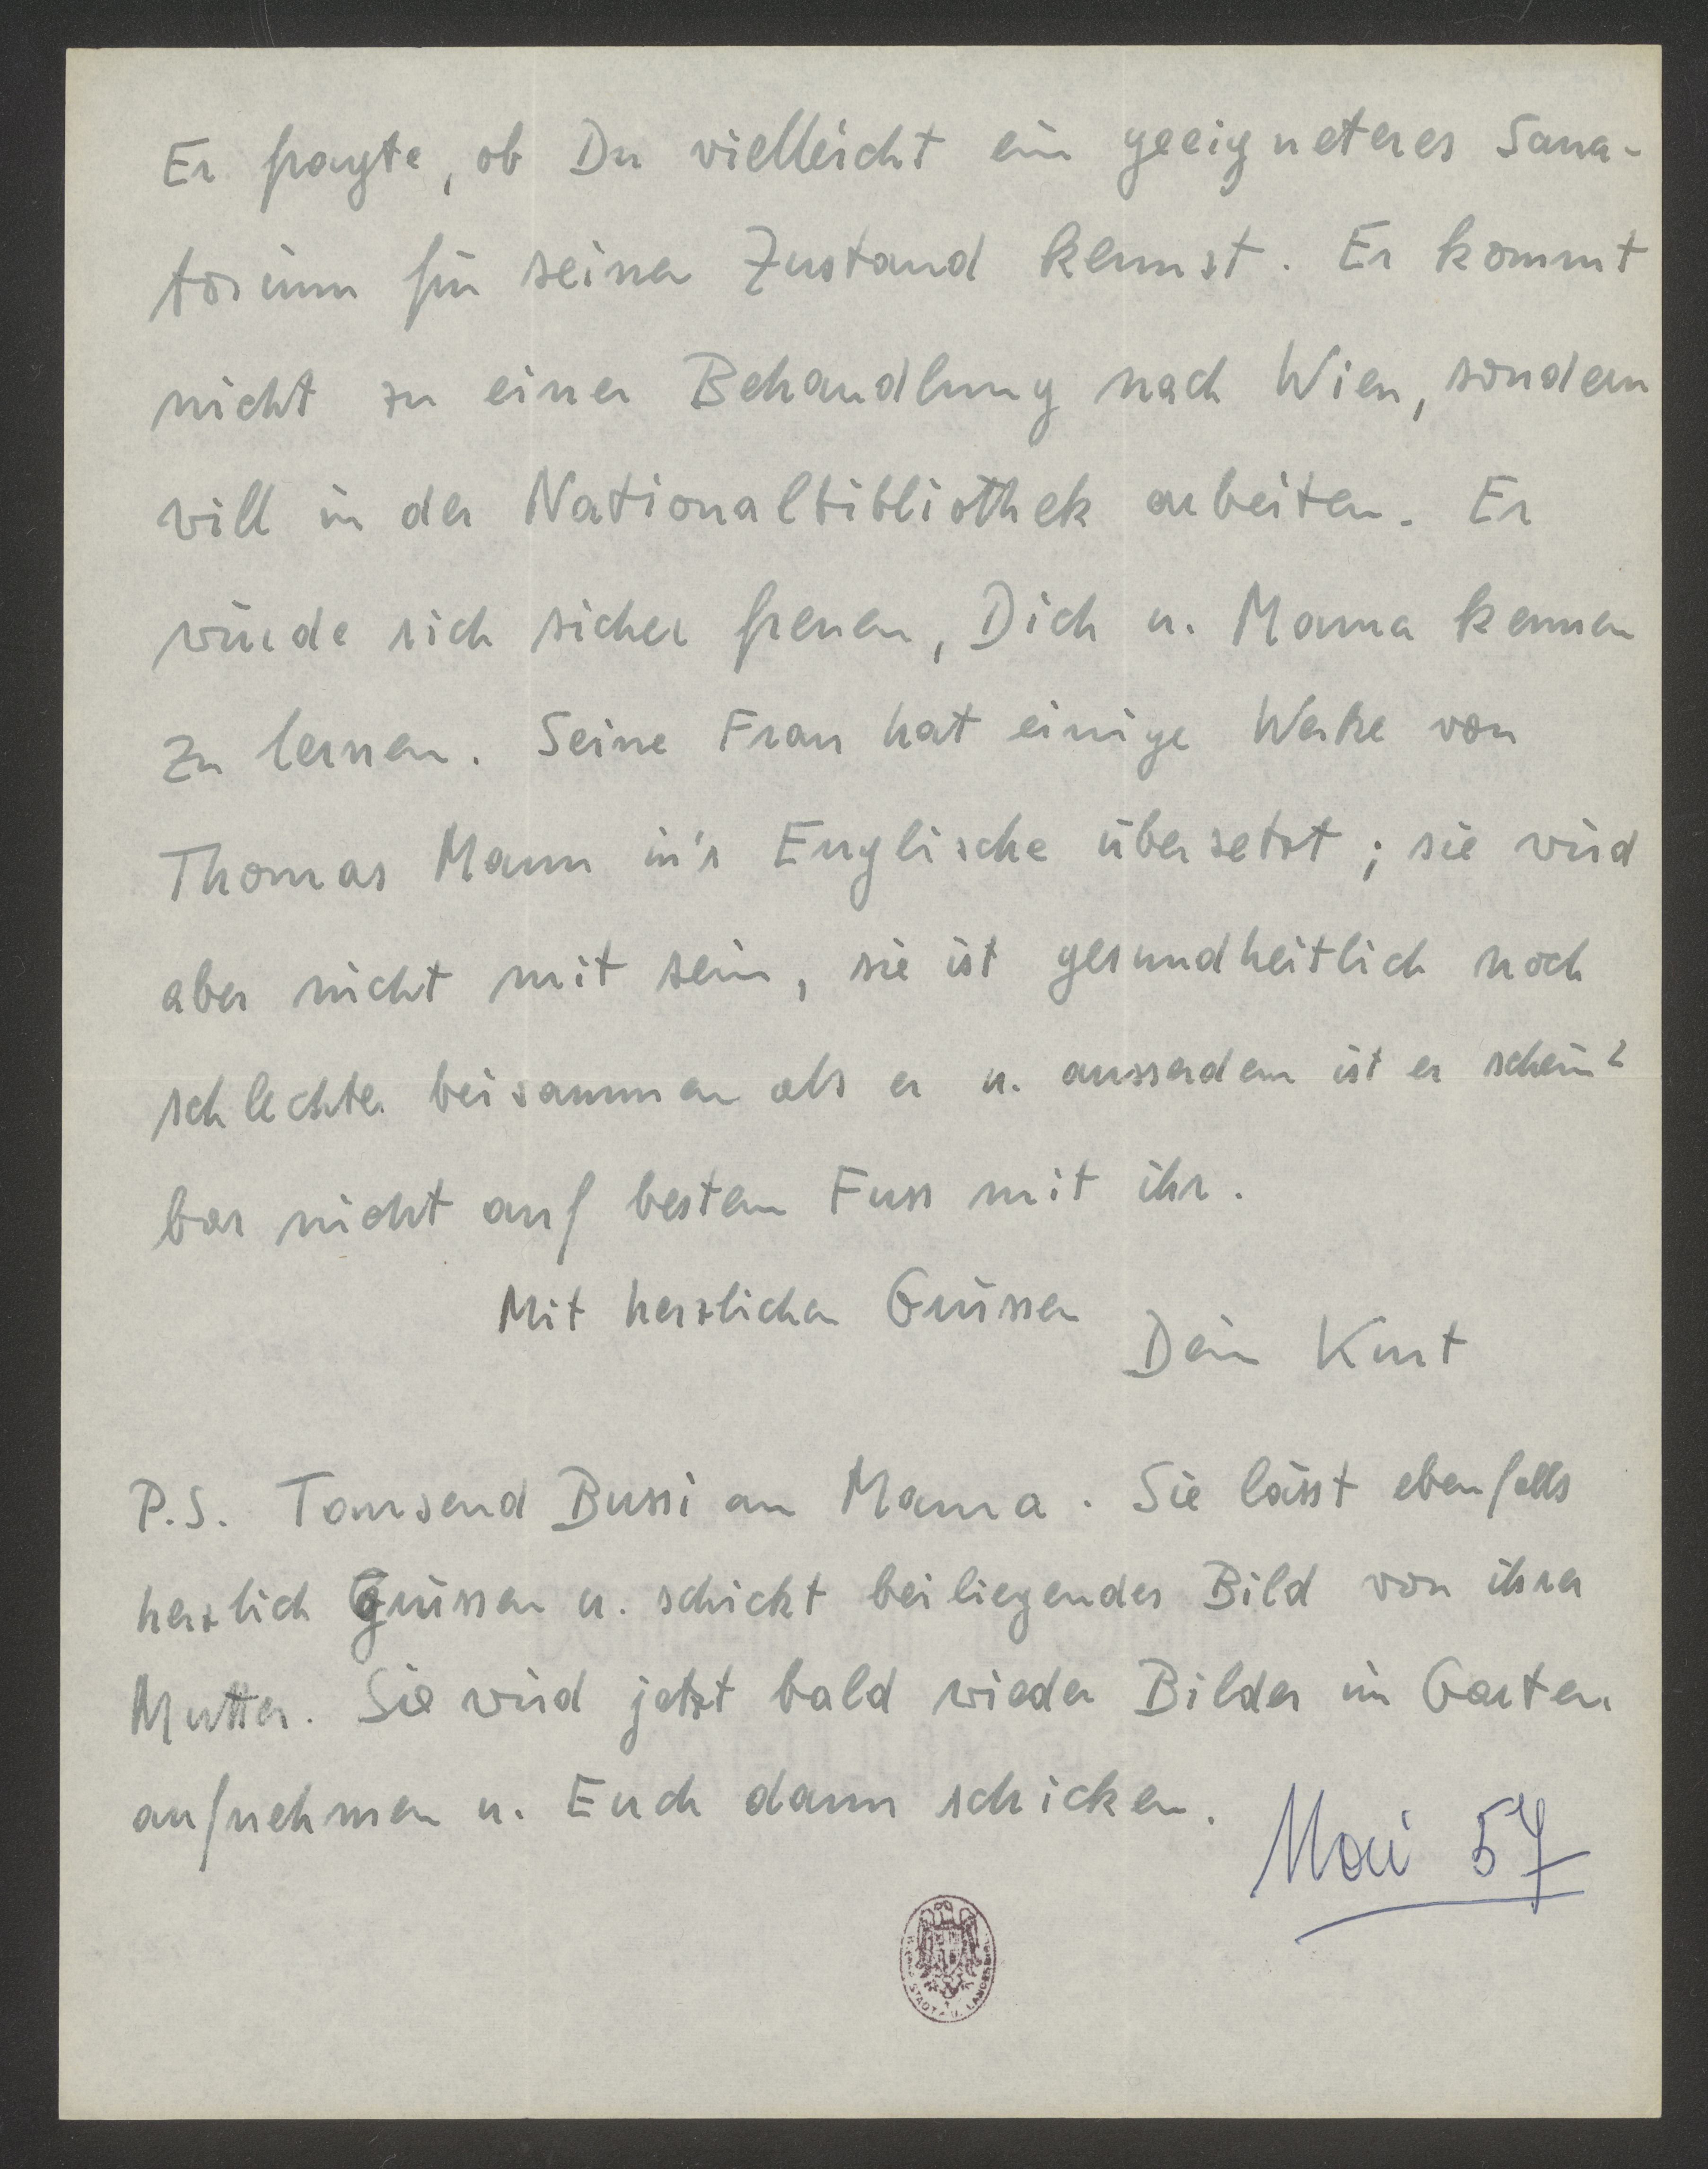 Er fragte, ob Du vielleicht ein geeigneteres Sana-
torium für seinen Zustand kennst. Er kommt
nicht zu einer Behandlung nach Wien, sondern
will in der Nationalbibliothek arbeiten. Er
würde sich sicher freuen, Dich u. Mama kennen
zu lernen. Seine Frau hat einige Werke von
Thomas Mann in's Englische übersetzt; sie wird
aber nicht mit sein, sie ist gesundheitlich noch
schlechter beisammen als er u. ausserdem ist er schein-
bar nicht auf bestem Fuss mit ihr.
Mit herzlichen Grüssen
Dein Kurt
P.S. Tausend Bussi an Mama. Sie lässt ebenfalls
herzlich grüssen u. schickt beiliegendes Bild von ihrer
Mutter. Sie wird jetzt bald wieder Bilder im Garten
aufnehmen u. Euch dann schicken.
Mai 57
STADT- U. LANDESBIBL